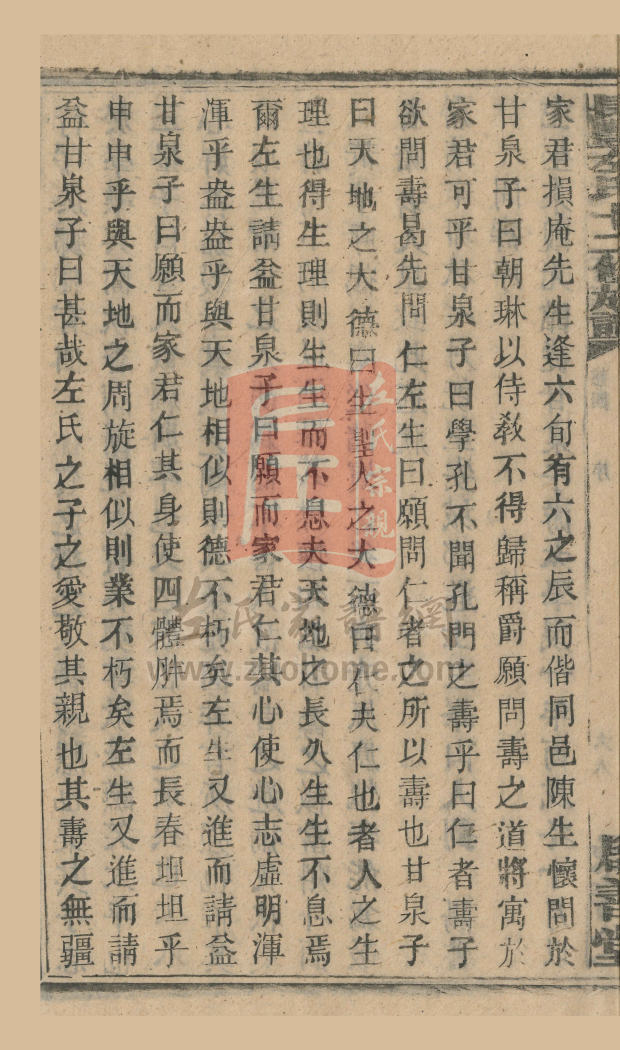 家君損庵先生逢六旬有六之辰而偕同邑陳生懷問於
甘泉子曰朝琳以侍教不得歸稱爵願問壽之道將寓於
家君可乎甘泉子曰學孔不聞孔門之壽乎曰仁者壽子
欲問壽曷先問仁左生曰願問仁者之所以壽也甘泉子
曰天地之大德曰生聖人之大德曰仁夫仁也者人之生
理也得生理則生生而不息夫天地之長久生生不息焉
爾左生請益甘泉子曰願而家君仁其心使心志虛明渾
渾乎盎盎乎與天地相似則德不朽矣左生又進而請益
甘泉子曰願而家君仁其身使四體胖焉而長春坦坦乎
申申乎與天地之周旋相似則業不朽矣左生又進而請
益甘泉子曰甚哉左氏之子之愛敬其親也其壽之無疆
左氏宗親
左氏家譜網
www.zuohome.com